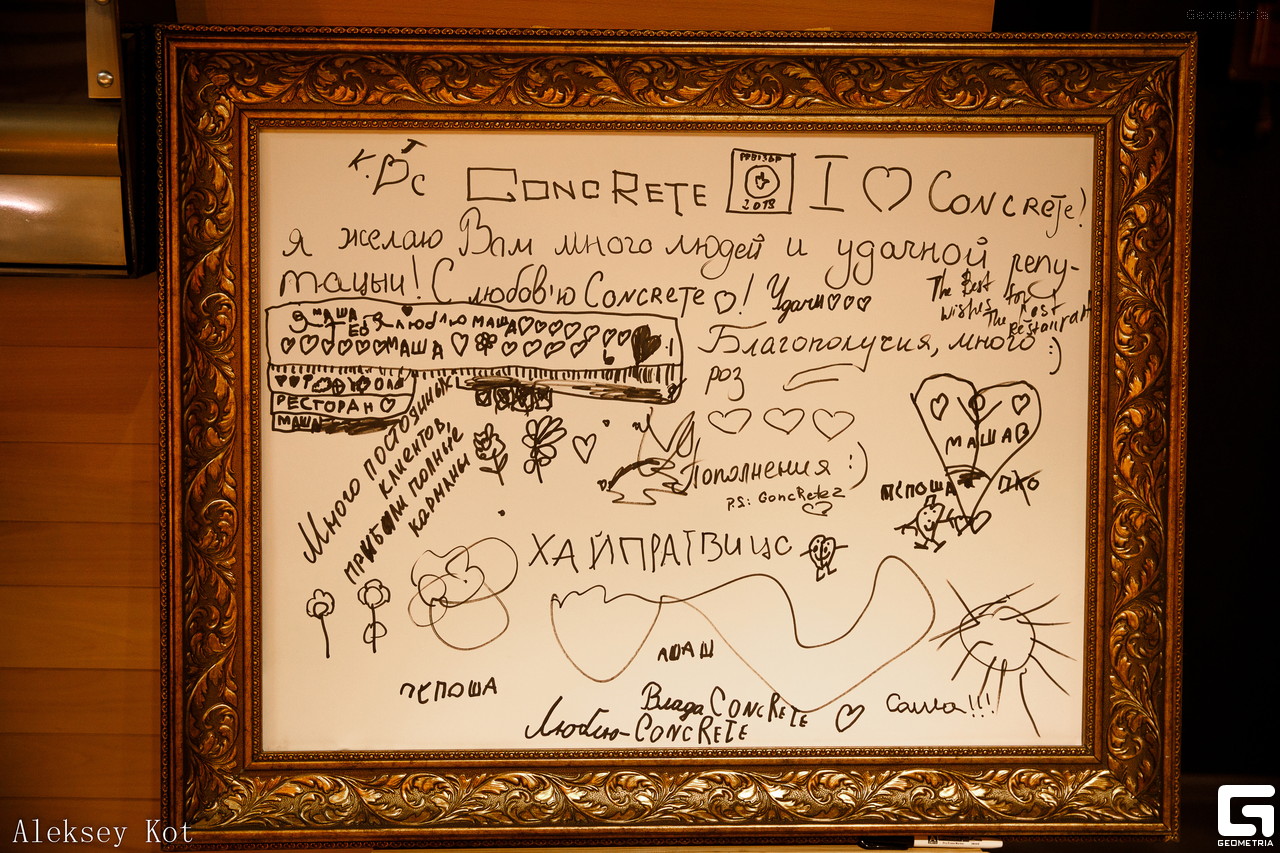 Geometria
К. Dс
CONCRETE
2018
I ♡ CONCRETE!
я желаю Вам много людей и удачной репу-
тацыи! С любов'ю CONCRETE ♡! Удачи ♡♡♡
The Best
wishes for
The Best
Restaurant
:)
Я МАША
Я люблю МАША ♡♡♡♡♡♡♡
♡♡♡♡♡♡ МАША ♡
РЕСТОРАН ♡
МАША
Благополучия, много
роз
Много постояных
клиентов,
прибыли полные
карманы
МАША
Пополнения :)
P.S: CONCRETE
♡
ПЄПОША
ХАЙПРАТВИЦС
АШАШ
ПЄПОША
Влада CONCRETE
Люблю-CONCRETE ♡
Саша!!!
Aleksey Kot
GEOMETRIA